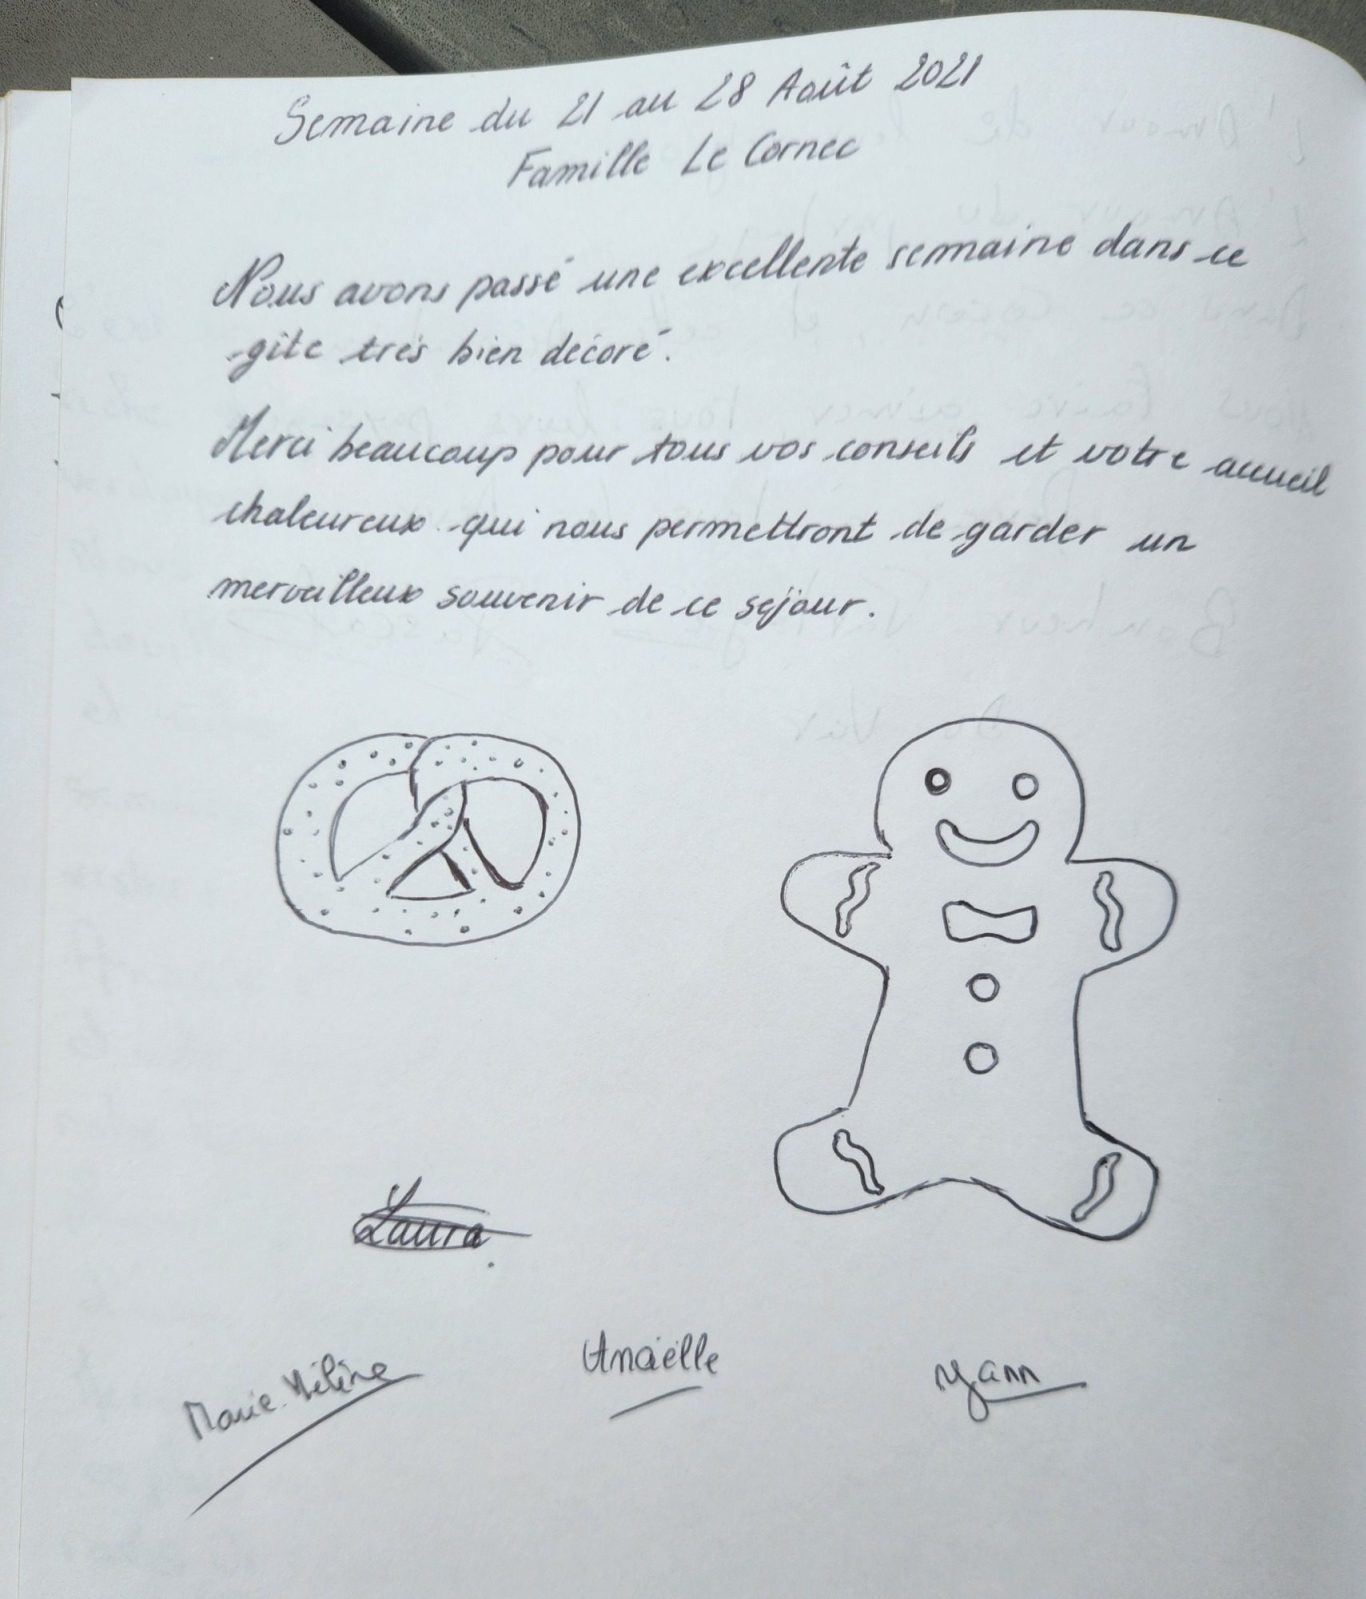 Semaine du 21 au 28 Août 2021
Famille Le Cornec
Nous avons passé une excellente semaine dans ce
gite très bien décoré.
Merci beaucoup pour tous vos conseils et votre accueil
chaleureux qui nous permettront de garder un
merveilleux souvenir de ce séjour.
Laura
Marie-Hélène
Anaëlle
Yann